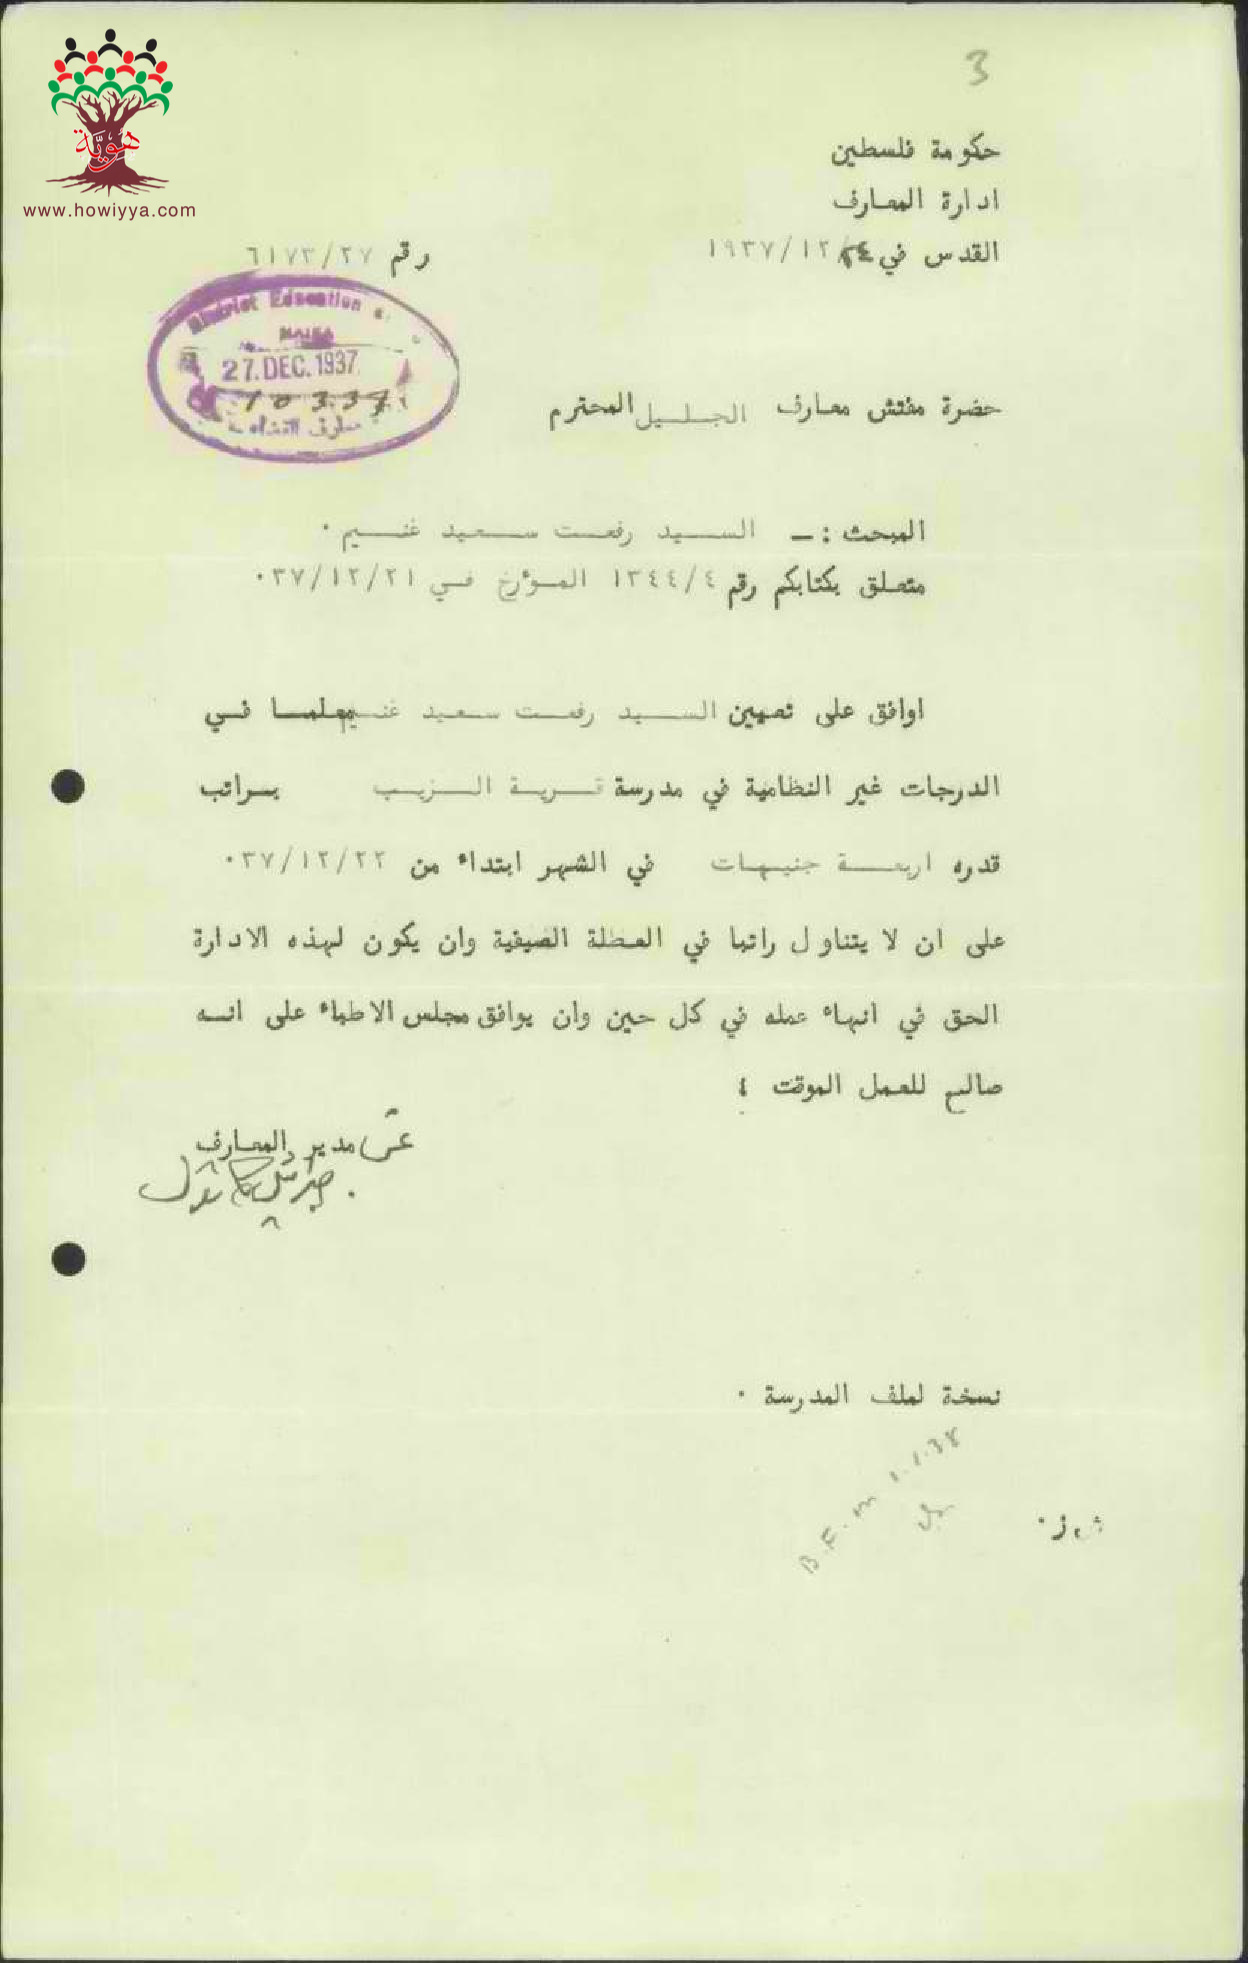 هوية
www.howiyya.com
3
حكومة فلسطين
ادارة المعارف
القدس في ٢٤/١٢/١٩٣٧
رقم ٦١٧٣/٢٧
District Education
HAIFA
27.DEC.1937
معارف اللواء
حضرة مفتش معارف الجليل المحترم
المبحث :- السيد رفعت سعيد غنيم ٠
متعلق بكتابكم رقم ١٣٤٤/٤ المؤرخ في ٣٧/١٢/٢١٠
اوافق على تعيين السيد رفعت سعيد غنيم معلما في
الدرجات غير النظامية في مدرسة قرية الزيب براتب
قدره اربعة جنيهات في الشهر ابتداء من ٣٧/١٢/٢٢٠
على ان لا يتناول راتبا في العطلة الصيفية وان يكون لهذه الادارة
الحق في انهاء عمله في كل حين وان يوافق مجلس الاطباء على انه
صالح للعمل الموقت ؛
عن مدير المعارف
جبرائيل كاتول
نسخة لملف المدرسة ٠
B.F. on 1.1.38